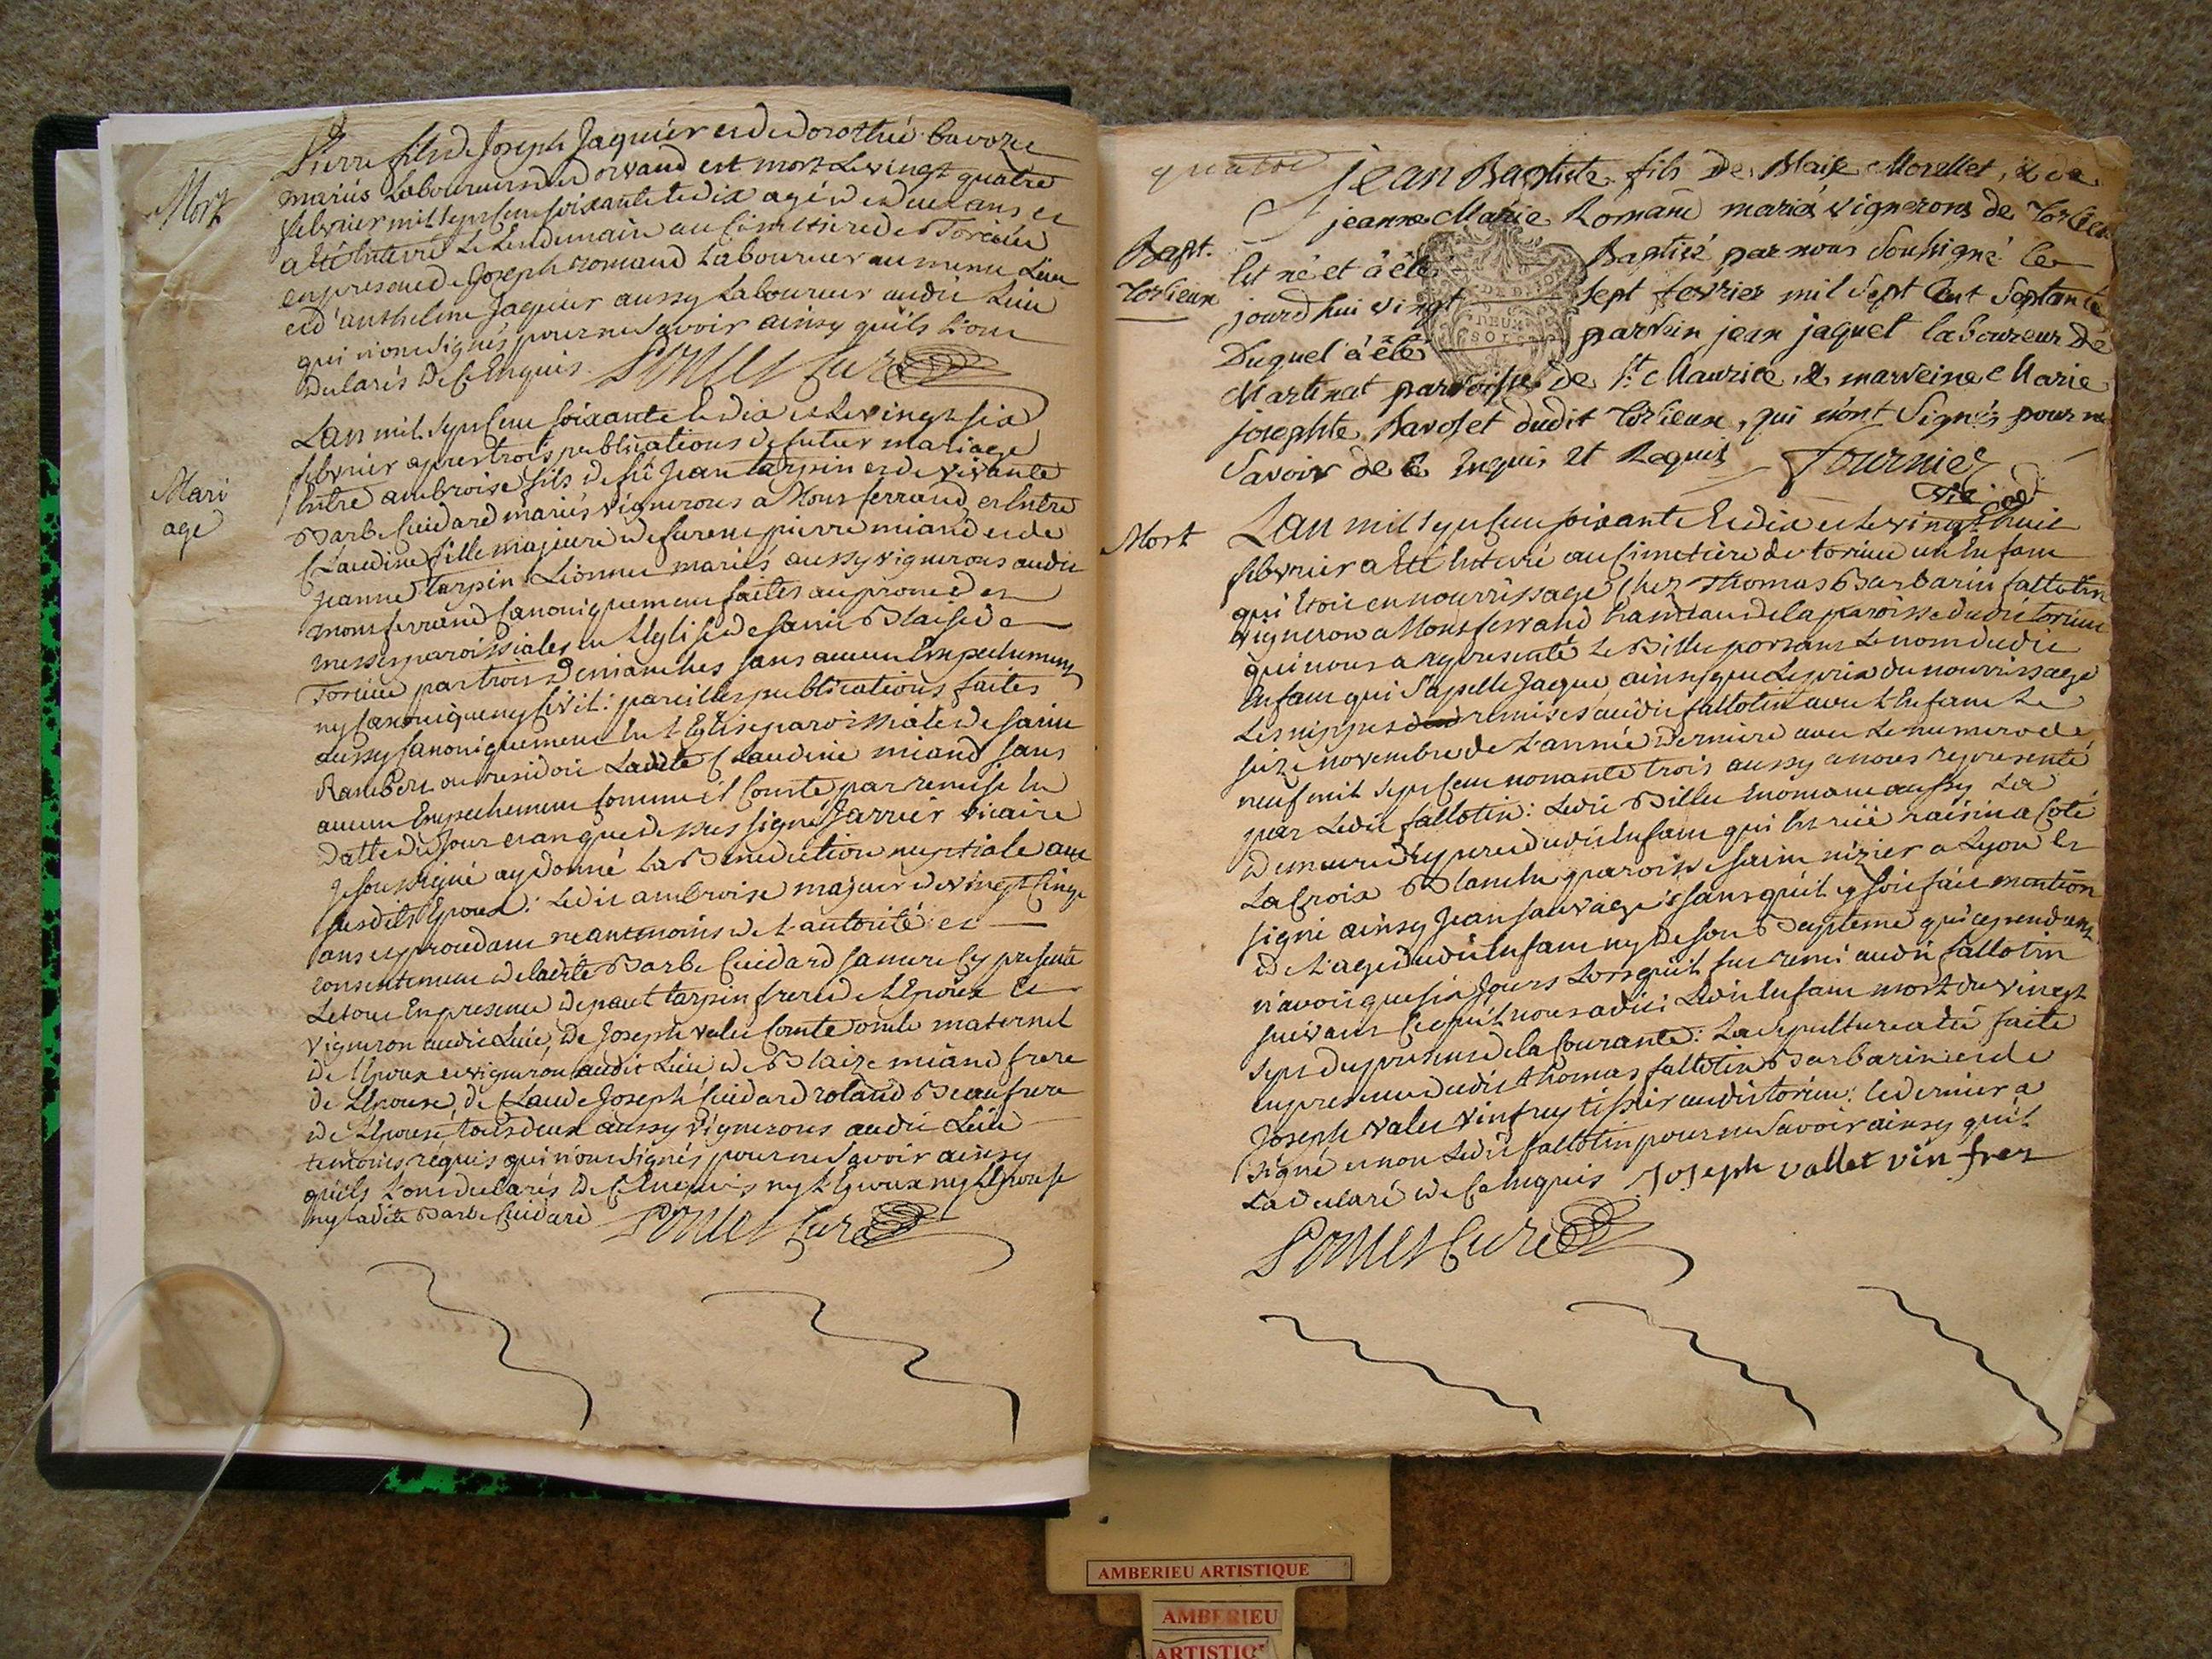 Mort
Pierre fils de Joseph Jaquier et de dorothée bavoze
mariés Laboureurs de dorvand est mort Le vingt quatre
febvrier mil sept cent soixante et dix agé de deux ans et
a été Enterré Le Lendemain au Cimetiere de Torcieu
en presence de Joseph romand Laboureur au meme Lieu
et d'anthelme Jaquier aussy Laboureur audit Lieu
qui n'ont signés pour ne savoir ainsy qu'ils L'ont
declarés de Ce Enquis. Curé
Mari
age
L'an mil sept cent soixante et dix et Le vingt six
febvrier apres trois publications de futur mariage
Entre ambroise fils de fû Jean tarpin et de vivante
Barbe Cuidard mariés vignerons a Montferrand et Entre
Claudine fille majeure de furent pierre miand et de
jeanne tarpin Lionnet mariés aussy vignerons audit
montferrand Canoniquement faites au prone des
messes paroissiales en L'Eglise de saint Blaise de
Torcieu par trois Dimanches sans aucun Empechement
ny Canonique ny Civil: pareilles publications faites
aussy Canoniquement En L'Eglise paroissiale de saint
Rambert ou residoit Ladite Claudine miand sans
aucun Empechement Comme il Conste par remise En
datte du Jour que dessus signé Jarrier vicaire
Je soussigné ay donné La Benediction nuptiale aux
susdits Epoux: Ledit ambroise majeur de vingt Cinq
ans neantmoins de L'autorité et
consentement de ladite Barbe Cuidard sa mere Cy presente
Le tout En presence de paul tarpin frere de L'Epoux et
vigneron audit Lieu, de Joseph valet Comte oncle maternel
de L'Epoux et vigneron audit Lieu de Blaize miand frere
de L'Epouse, de Claude Joseph Cuidard roland Beaufrere
de L'Epouse, tous deux aussy vignerons audit Lieu
temoins requis qui n'ont signés pour ne savoir ainsy
qu'ils L'ont declarés de Ce Enquis ny L'Epoux ny L'Epouse
ny ladite Barbe Cuidard Curé
jean Baptiste fils de Blaise Morellet, & de
jeanne Marie Romand mariés vignerons de Torcieu
Bapt.
Torcieux
Est né et à été Baptisé par nous Soussigné le
jourd'hui vingt sept fevrier mil Sept Cent Septante
Duquel à été parrein jean jaquet laboureur de
Martinat parroisse de St. Maurice, & marreine Marie
josephte Bavoset dudit Torcieux, qui n'ont Signés pour ne
Savoir de ce Enquis et Requis Fournier
vic.
Mort
L'an mil sept cent soixante et dix et Le vingt huit
febvrier a été Enterré au Cimetiere de torcieu un Enfant
qui Etoit en nourrissage Chez Thomas Barbarin fallotin
vigneron a Montferrand hameau de la paroisse dudit torcieu
qui nous a representé Le Billet portant Le nom dudit
Enfant qui s'apelle Jaque, ainsy que Le prix du nourrissage
Les nippes remises audit fallotin avec L'Enfant Le
seize novembre de L'année derniere avec Le numero de
neuf mil sept cent nonante trois aussy a nous representé
par Ledit fallotin: Ledit Billet Enonçant aussy La
demeure du pere dudit Enfant qui Est rüe raisin a Coté
La Croix Blanche paroisse saint nizier a Lyon Et
signé ainsy Jean sauvage: sans qu'il y soit fait mention
de L'age dudit Enfant ny de son Bapteme qui cependant
n'avoit que six Jours Lorsqu'il fut remi audit fallotin
suivant Ce qu'il nous a dit: Ledit Enfant mort du vingt
sept du present de la Courante: La sepulture a été faite
en presence dudit thomas fallotin Barbarin et de
Joseph valet vinfrey tissier audit torcieu: Ce dernier a
signé et non Ledit fallotin pour ne savoir ainsy qu'il
L'a declaré de Ce Enquis Joseph vallet vin frez
Curé
AMBERIEU ARTISTIQUE
AMBERIEU
ARTISTIQ